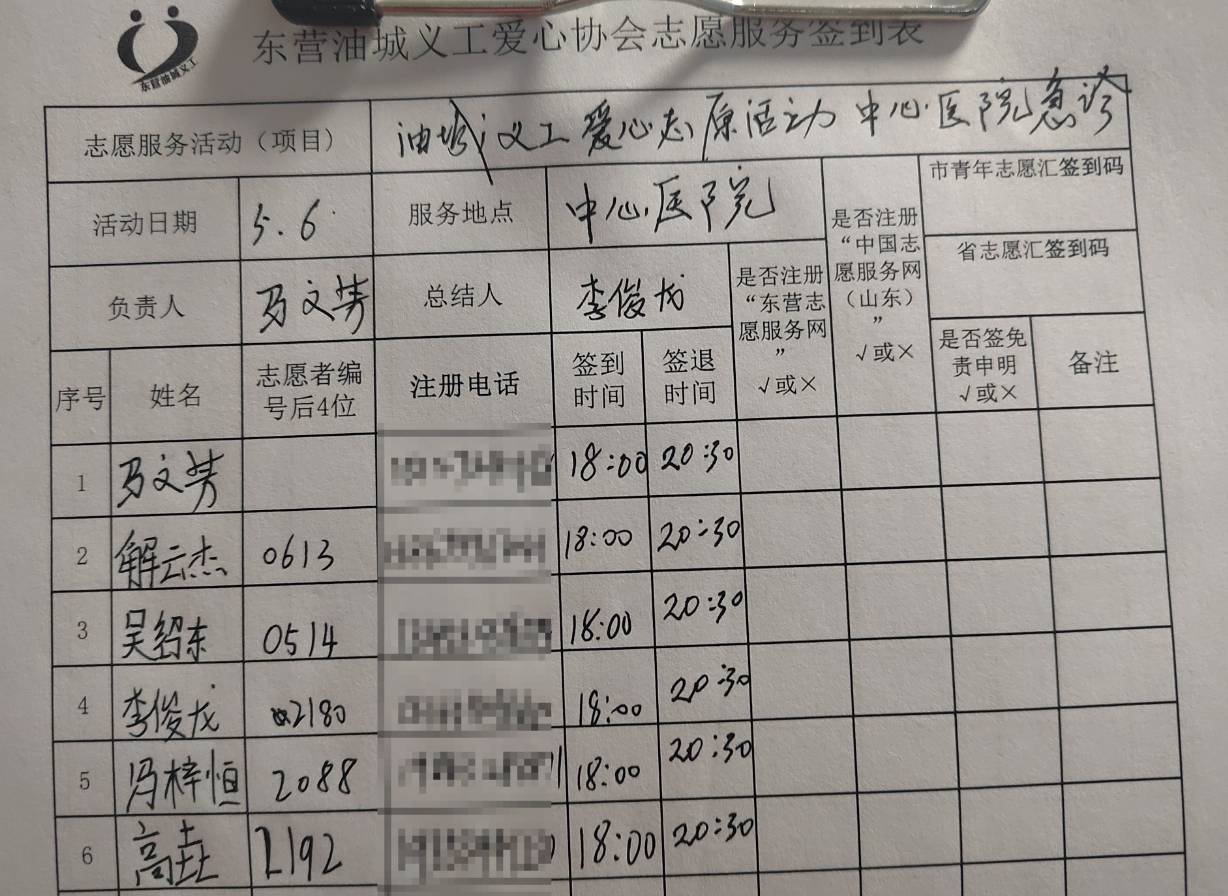 东营油城义工
东营油城义工爱心协会志愿服务签到表
志愿服务活动（项目） 油城义工爱心志原活动 中心医院急诊
活动日期 5.6 服务地点 中心医院
负责人 马文芳 总结人 李俊龙
是否注册
“东营志
愿服务网
”
√或×
是否注册
“中国志
愿服务网
（山东）
”
√或×
市青年志愿汇签到码
省志愿汇签到码
序号 姓名
志愿者编
号后4位
注册电话
签到
时间
签退
时间
是否签免
责申明
√或×
备注
1 马文芳 18:00 20:30
2 解云杰 0613 18:00 20:30
3 吴绍东 0514 18:00 20:30
4 李俊龙 2180 18:00 20:30
5 冯梓恒 2088 18:00 20:30
6 高垚 2192 18:00 20:30